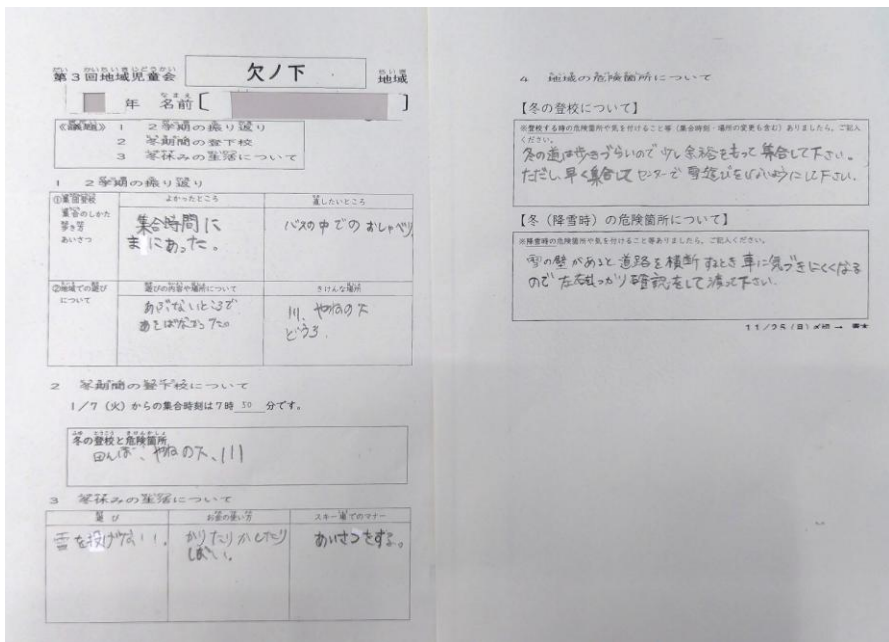 第3回地域児童会
欠ノ下
地域
年 名前〔 〕
《議題》 1 2学期の振り返り
2 冬期間の登下校
3 冬休みの生活について
1 2学期の振り返り
よかったところ
直したいところ
①集団登校
集合のしかた
歩き方
あいさつ
集合時間に
まにあった。
バスの中でのおしゃべり
②地域での遊び
について
遊びの内容や場所について
きけんな場所
あぶないところで
あそばなかった
川、やねの下
どうろ
2 冬期間の登下校について
1/7(火)からの集合時刻は7時 30 分です。
冬の登校と危険箇所
田んぼ、やねの下、川
3 冬休みの生活について
遊び
お金の使い方
スキー場でのマナー
雪を投げない。
かりたりかしたり
しない。
あいさつをする。
4 地域の危険箇所について
【冬の登校について】
※登校する時の危険箇所や気を付けること等(集合時刻・場所の変更も含む)ありましたら、ご記入
ください。
冬の道は歩きづらいので少し余裕をもって集合して下さい。
ただし、早く集合してセンターで雪遊びをしないようにして下さい。
【冬(降雪時)の危険箇所について】
※降雪時の危険箇所や気を付けること等ありましたら、ご記入ください。
雪の壁があると道路を横断するとき車に気づきにくくなる
ので左右しっかり確認をして渡って下さい。
11/25(月)〆切 →